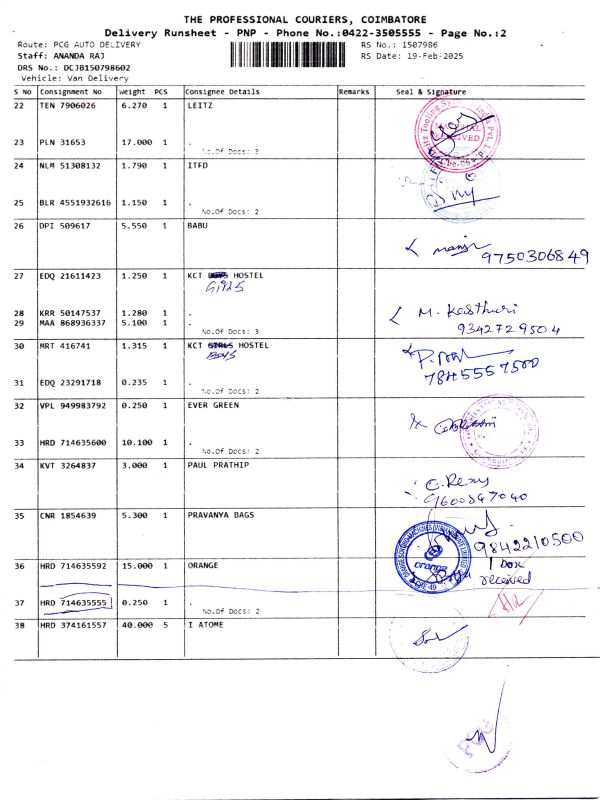 THE PROFESSIONAL COURIERS, COIMBATORE
Delivery Runsheet - PNP - Phone No.:0422-3505555 - Page No.:2
Route: PCG AUTO DELIVERY RS No.: 1507986
Staff: ANANDA RAJ RS Date: 19-Feb-2025
DRS No.: DCJB150798602
Vehicle: Van Delivery
S No Consignment No Weight PCS Consignee Details Remarks Seal & Signature
22 TEN 7906026 6.270 1 LEITZ
23 PLN 31653 17.000 1 .
No.Of Docs: 3
24 NLM 51308132 1.790 1 ITFD
25 BLR 4551932616 1.150 1 .
No.Of Docs: 2
26 DPI 509617 5.550 1 BABU
9750306849
27 EDQ 21611423 1.250 1 KCT BOYS HOSTEL
GIRLS
28 KRR 50147537 1.280 1 .
M. Kasthuri
29 MAA 868936337 5.100 1 .
9342729504
No.Of Docs: 3
30 MRT 416741 1.315 1 KCT GIRLS HOSTEL
BOYS
7845557500
31 EDQ 23291718 0.235 1 .
No.Of Docs: 2
32 VPL 949983792 0.250 1 EVER GREEN
33 HRD 714635600 10.100 1 .
No.Of Docs: 2
34 KVT 3264837 3.000 1 PAUL PRATHIP
9600347040
35 CNR 1854639 5.300 1 PRAVANYA BAGS
9842210500
36 HRD 714635592 15.000 1 ORANGE
orange
1 box
received
37 HRD 714635555 0.250 1 .
No.Of Docs: 2
38 HRD 374161557 40.000 5 I ATOME